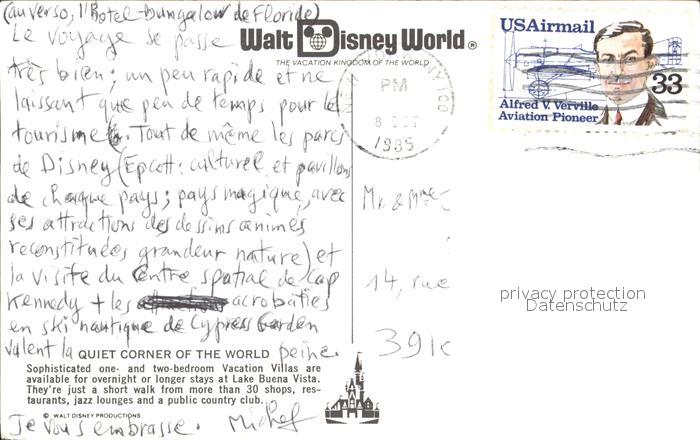 (au verso, l'hotel-bungalow de Floride)
Le voyage se passe
très bien; un peu rapide et ne
laissant que peu de temps pour le
tourisme. Tout de même les parcs
de Disney (Epcott: culturel et pavillons
de chaque pays; pays magique, avec
ses attractions des dessins animés
reconstituées grandeur nature) et
la visite du Centre spatial de Cap
Kennedy + les acrobaties
en ski nautique de Cypress Garden
valent la peine.
Je vous embrasse. Michel
Walt Disney World®
THE VACATION KINGDOM OF THE WORLD
QUIET CORNER OF THE WORLD
Sophisticated one- and two-bedroom Vacation Villas are
available for overnight or longer stays at Lake Buena Vista.
They're just a short walk from more than 30 shops, res-
taurants, jazz lounges and a public country club.
© WALT DISNEY PRODUCTIONS
PM
8 OCT
1985
USAirmail
33
Alfred V. Verville
Aviation Pioneer
Mr. & Mme
14, rue
privacy protection
Datenschutz